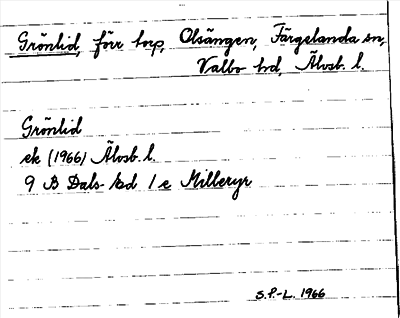 Grönlid, förr torp, Olsängen, Färgelanda sn,
Valbo hd, Älvsb. l.
Grönlid
ek (1966) Älvsb. l.
9 B Dals- Ed 1 e Milleryr
S.P.-L. 1966